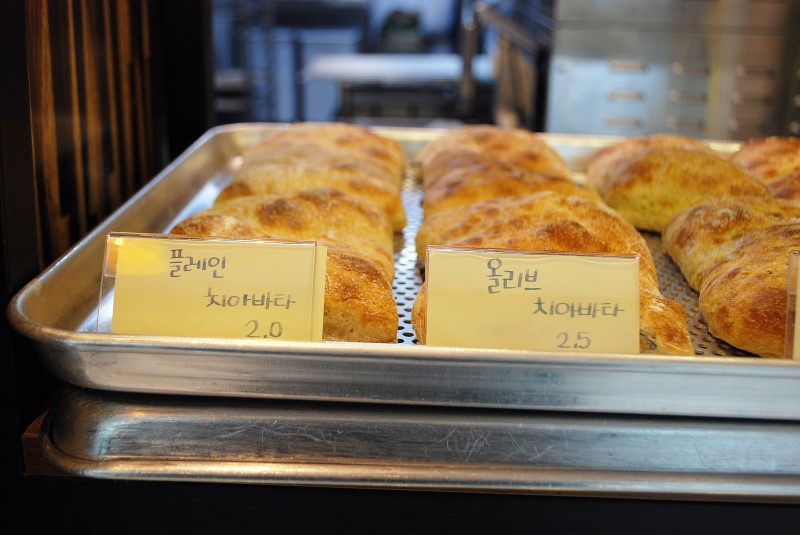 플레인
치아바타
2.0
올리브
치아바타
2.5